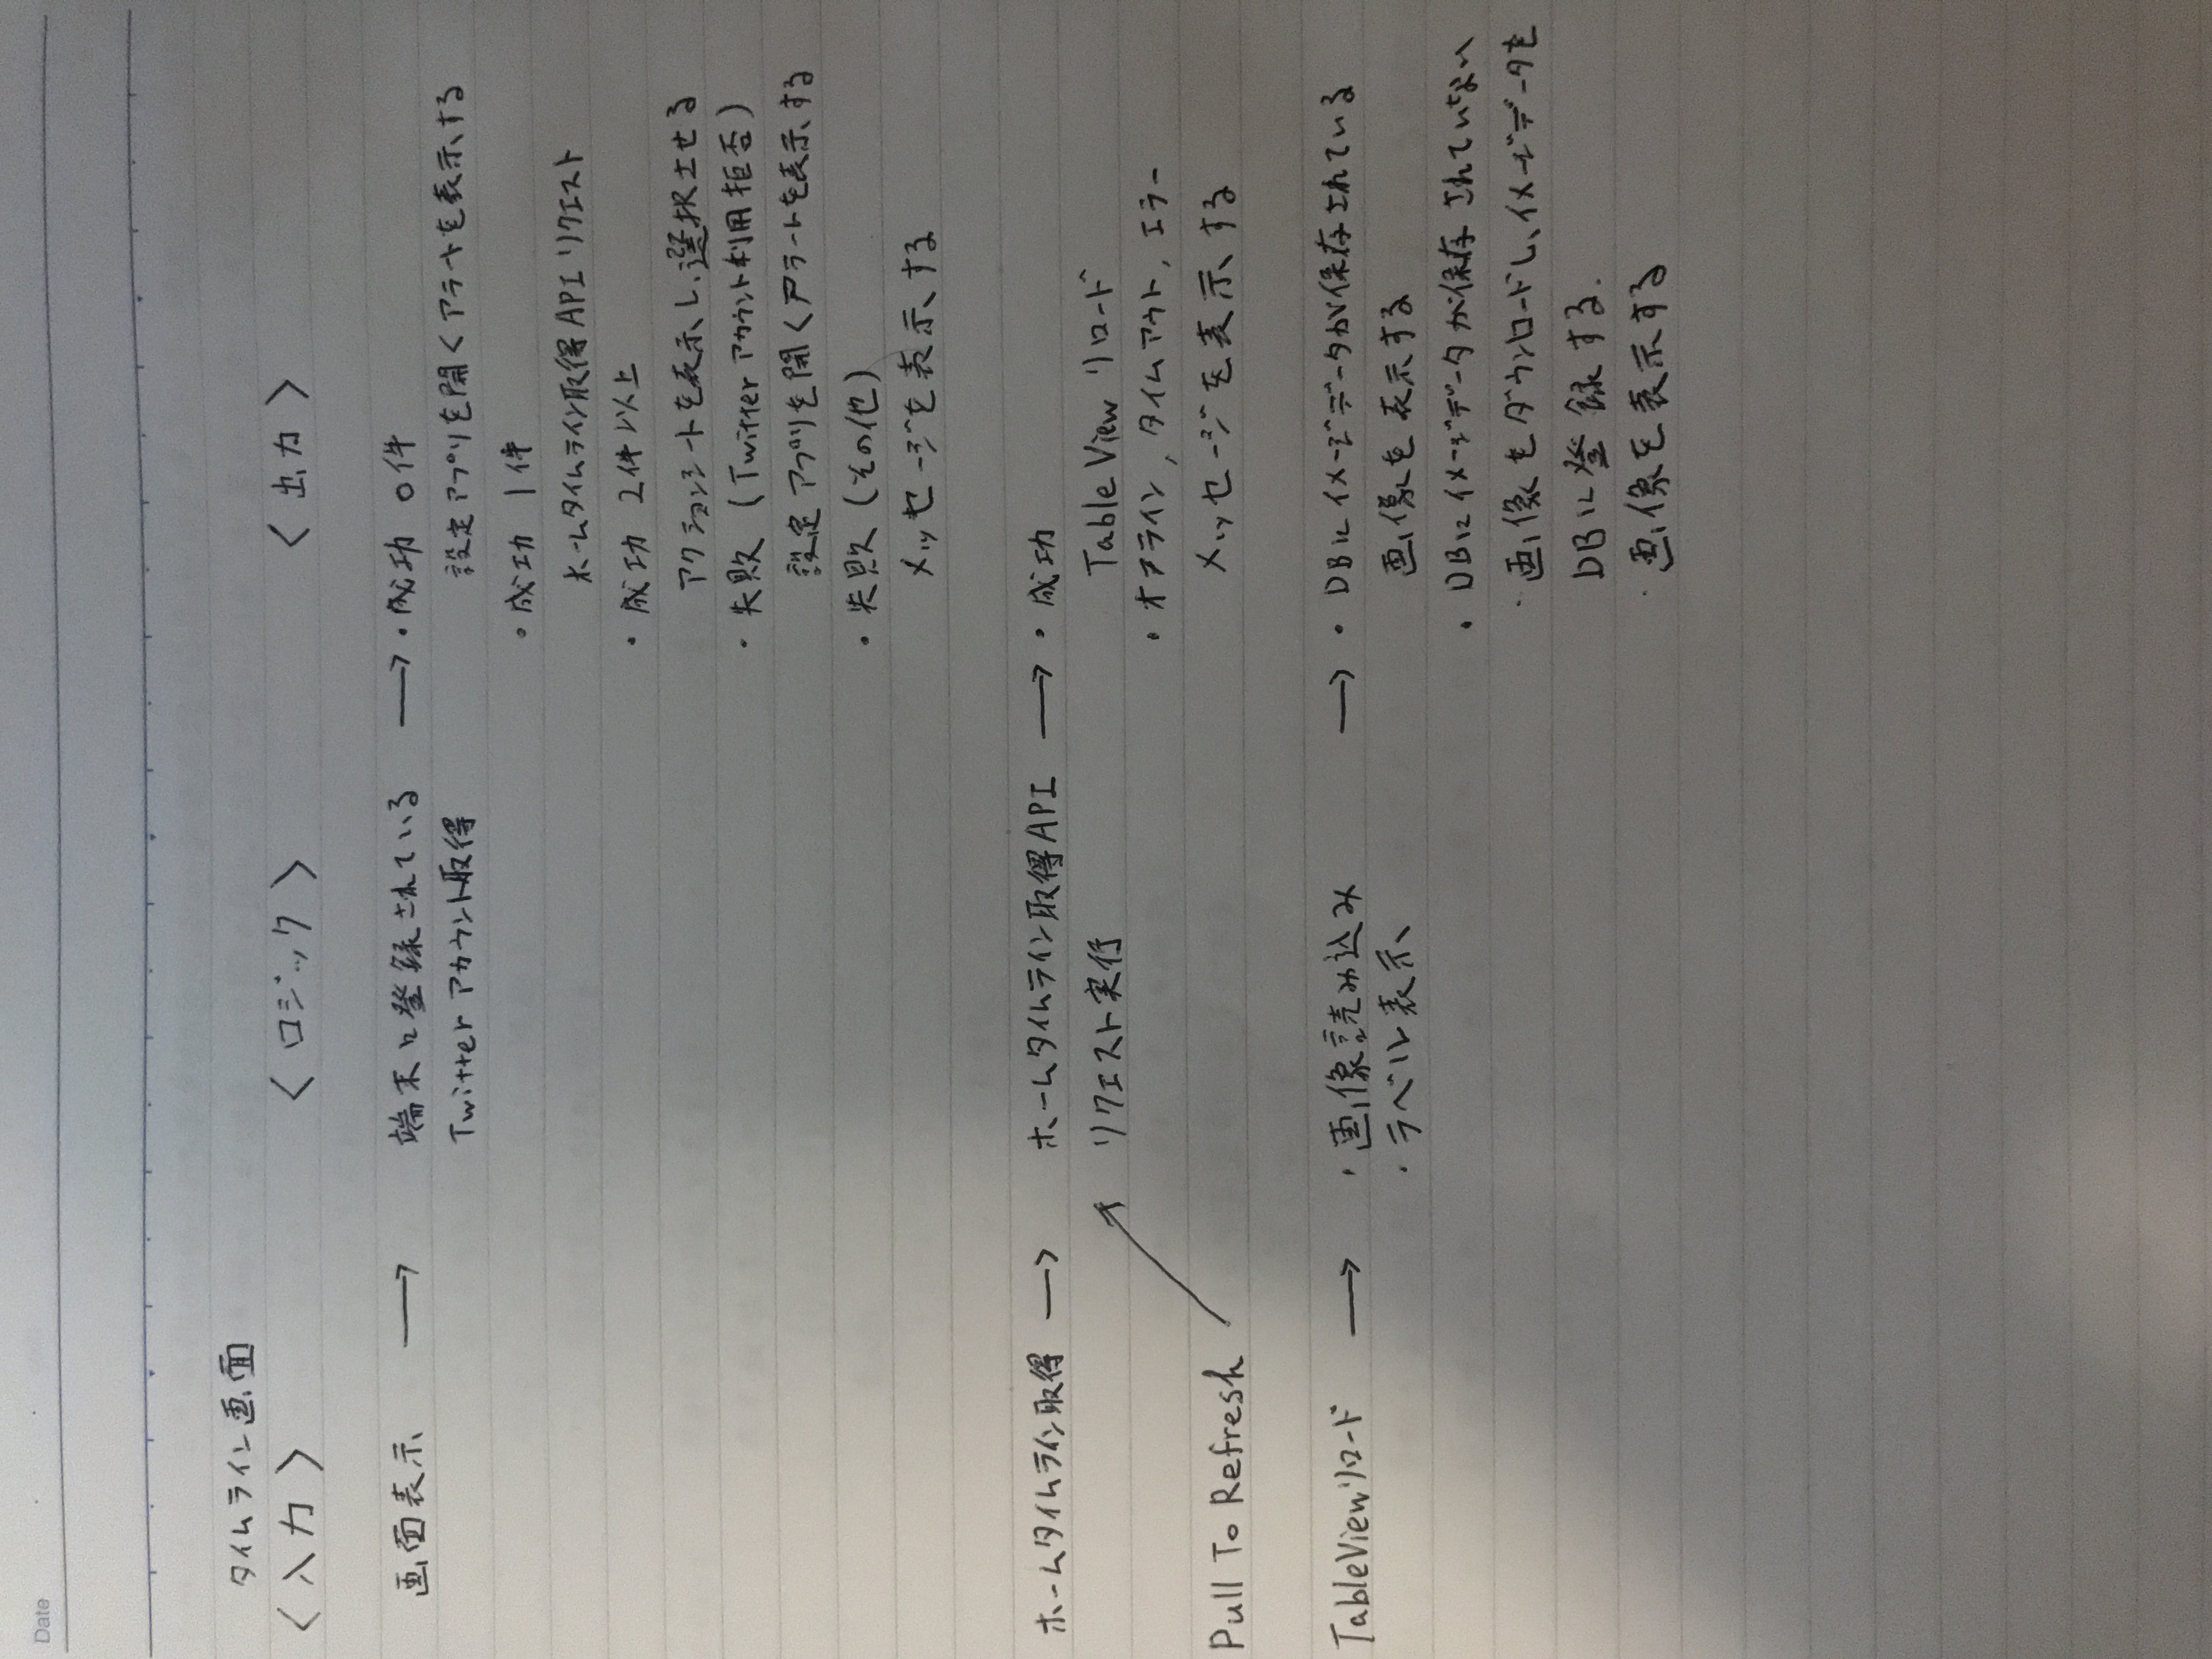 Date
タイムライン画面
〈入力〉 〈ロジック〉 〈出力〉
画面表示 → 端末に登録されている → ・成功 0件
Twitter アカウント取得 設定アプリを開くアラートを表示する
・成功 1件
ホームタイムライン取得 API リクエスト
・成功 2件以上
アクションシートを表示し、選択させる
・失敗 (Twitter アカウント利用拒否)
設定アプリを開くアラートを表示する
・失敗 (その他)
メッセージを表示する
ホームタイムライン取得 → ホームタイムライン取得API → ・成功
リクエスト実行 Table View リロード
・オフライン, タイムアウト, エラー
Pull To Refresh メッセージを表示する
TableViewリロード → ・画像読み込み → ・DBにイメージデータが保存されている
・ラベル表示 画像を表示する
・DBにイメージデータが保存されていない
・画像をダウンロードし、イメージデータを
DBに登録する.
・画像を表示する